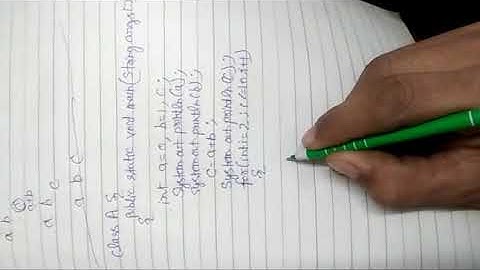 a b
a+b
a b c
a b c
class A {
public static void main(String args[])
{
int a=0, b=1, c;
System.out.println(a);
System.out.println(b);
c=a+b;
System.out.println(c);
for(int i=2; i
{